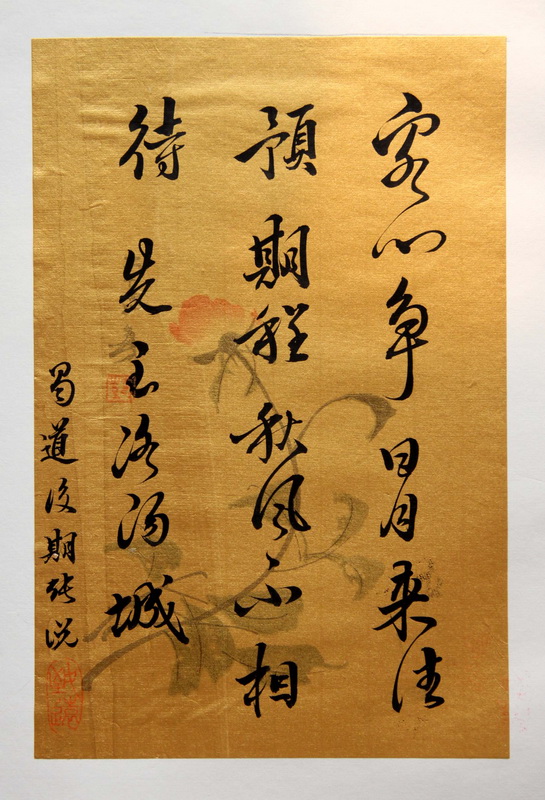 客心爭日月來往
預期程秋風不相
待先至洛陽城
蜀道後期張説